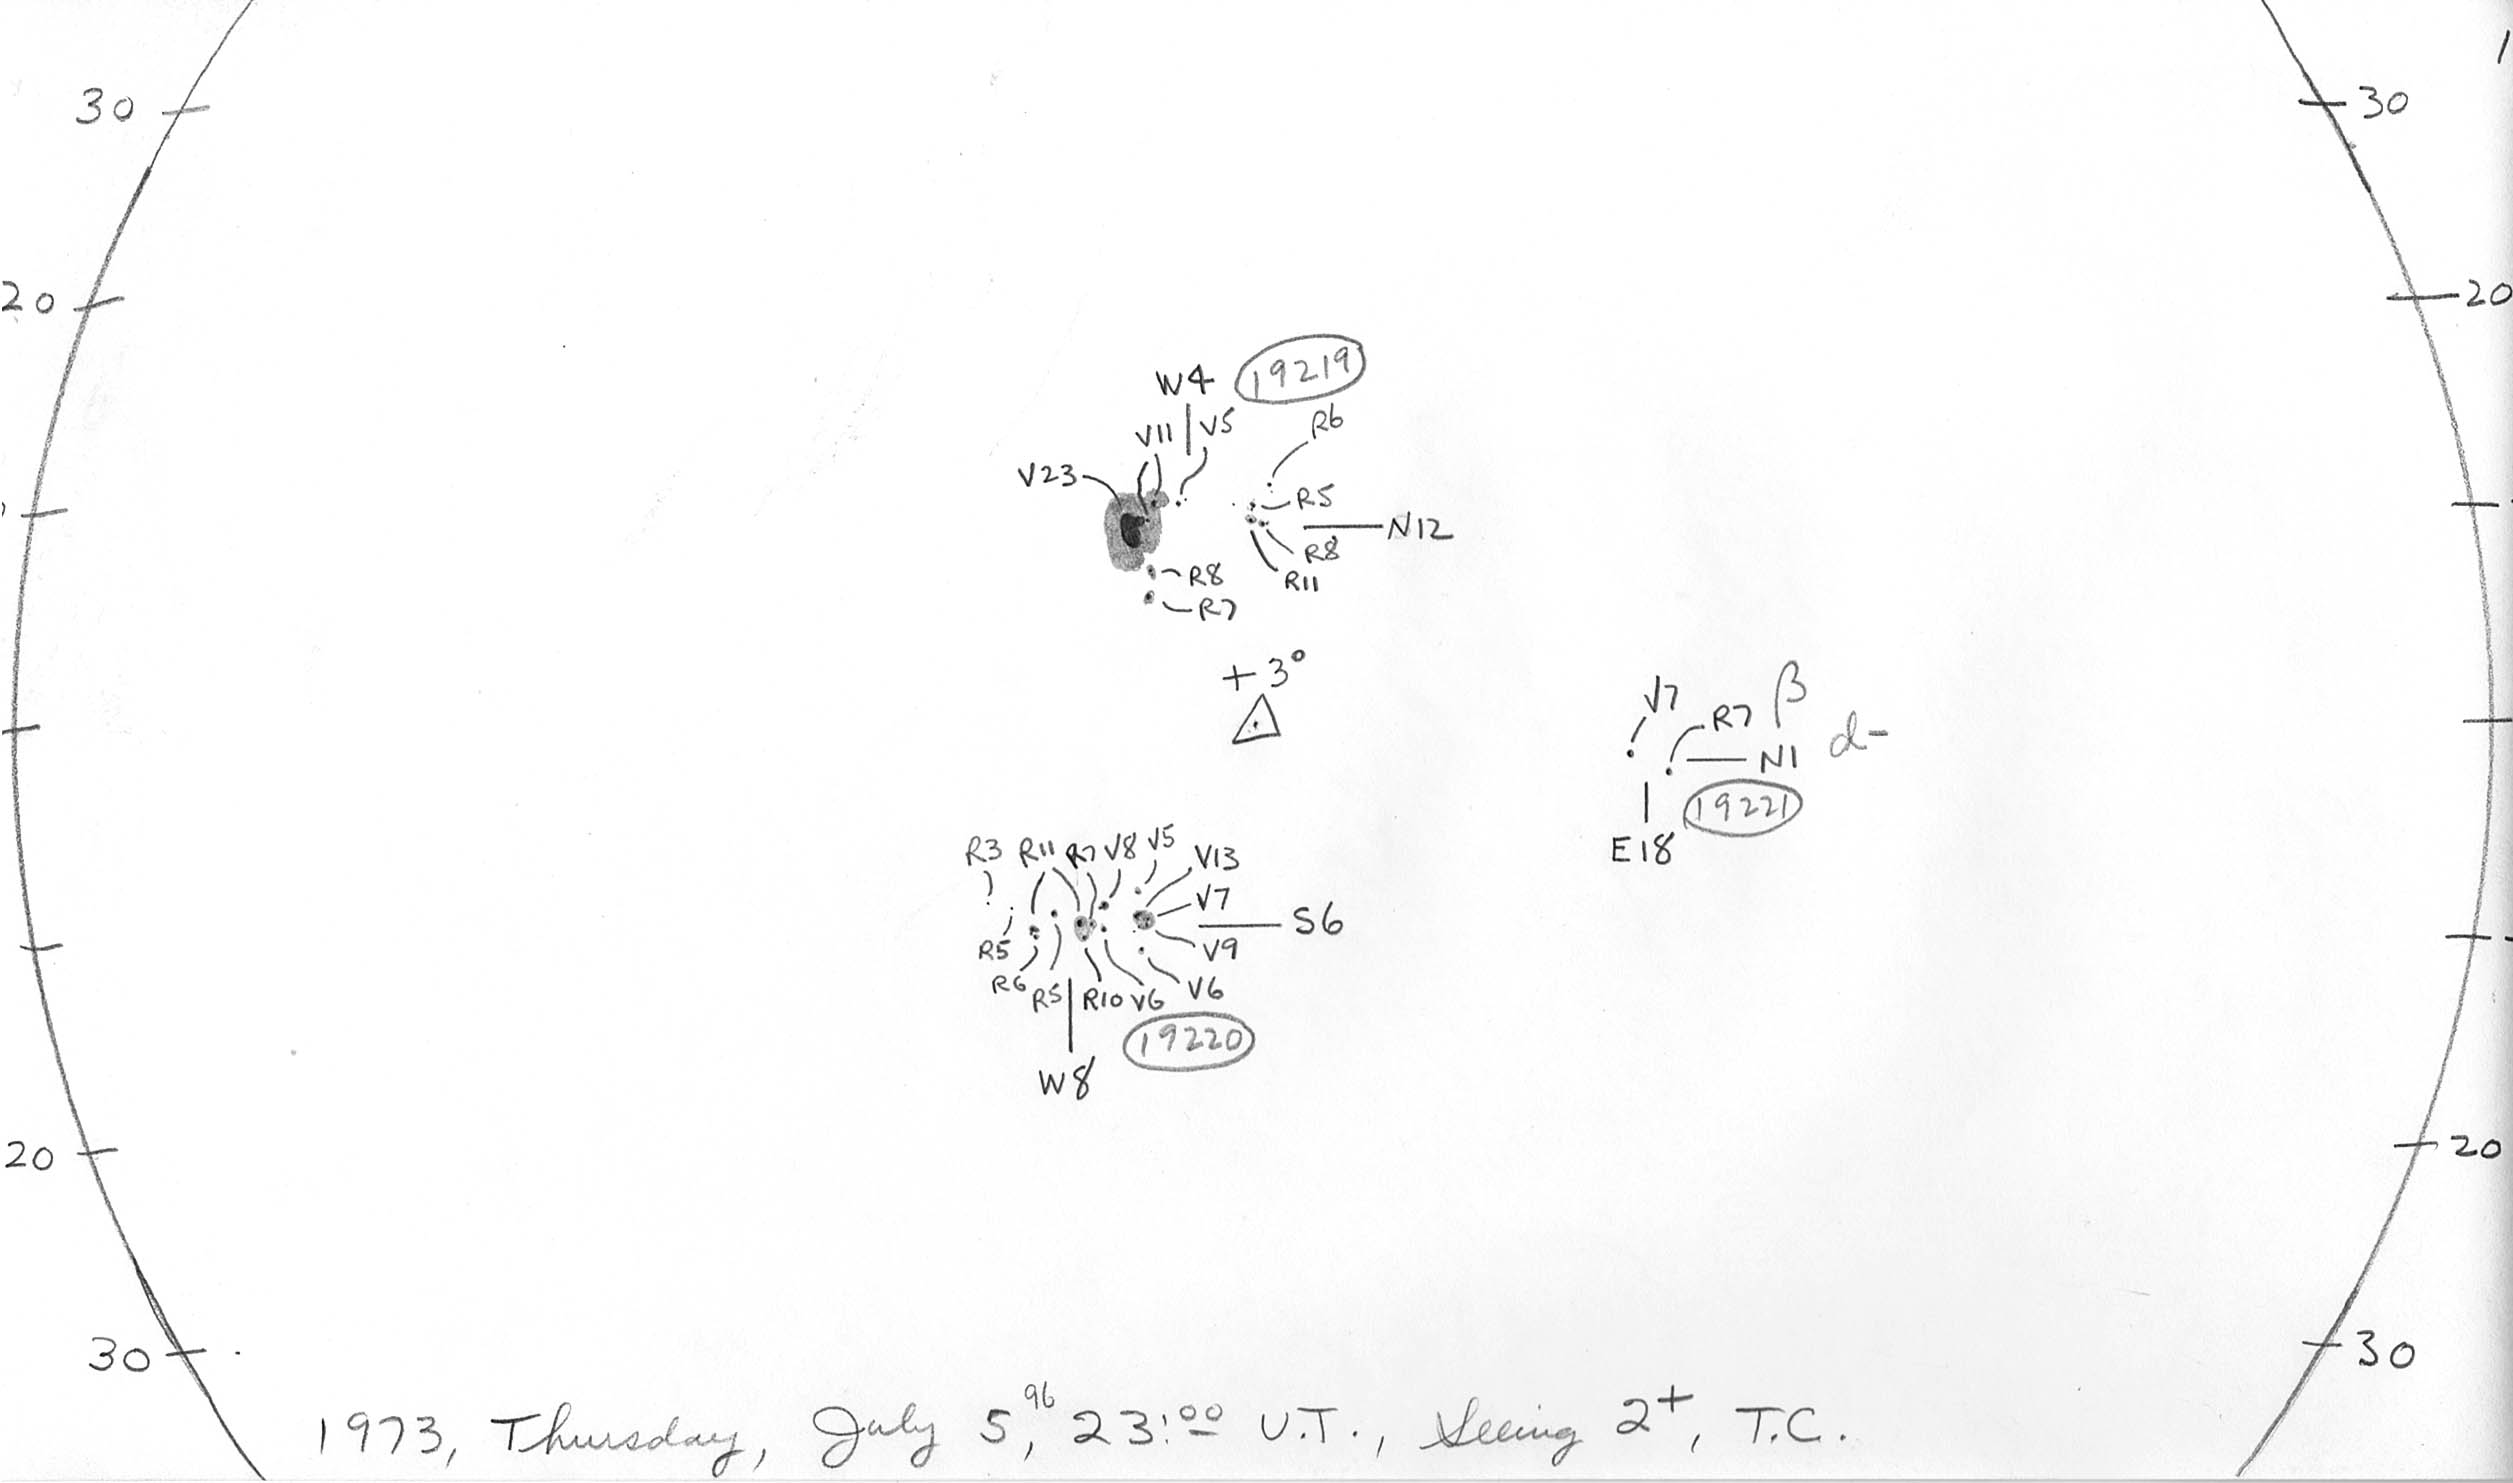 30
30
20
20
W4
19219
V11
V5
R6
V23
R5
N12
R8
R11
R8
R7
+3°
V7
R7
β
N1
d-
19221
E18
R3 R11 R7 V8 V5
V13
V7
S6
R5
V9
R6
R5
R10 V6 V6
19220
W8
20
20
30
30
1973, Thursday, July 5,96 23:00 U.T., Seeing 2+, T.C.